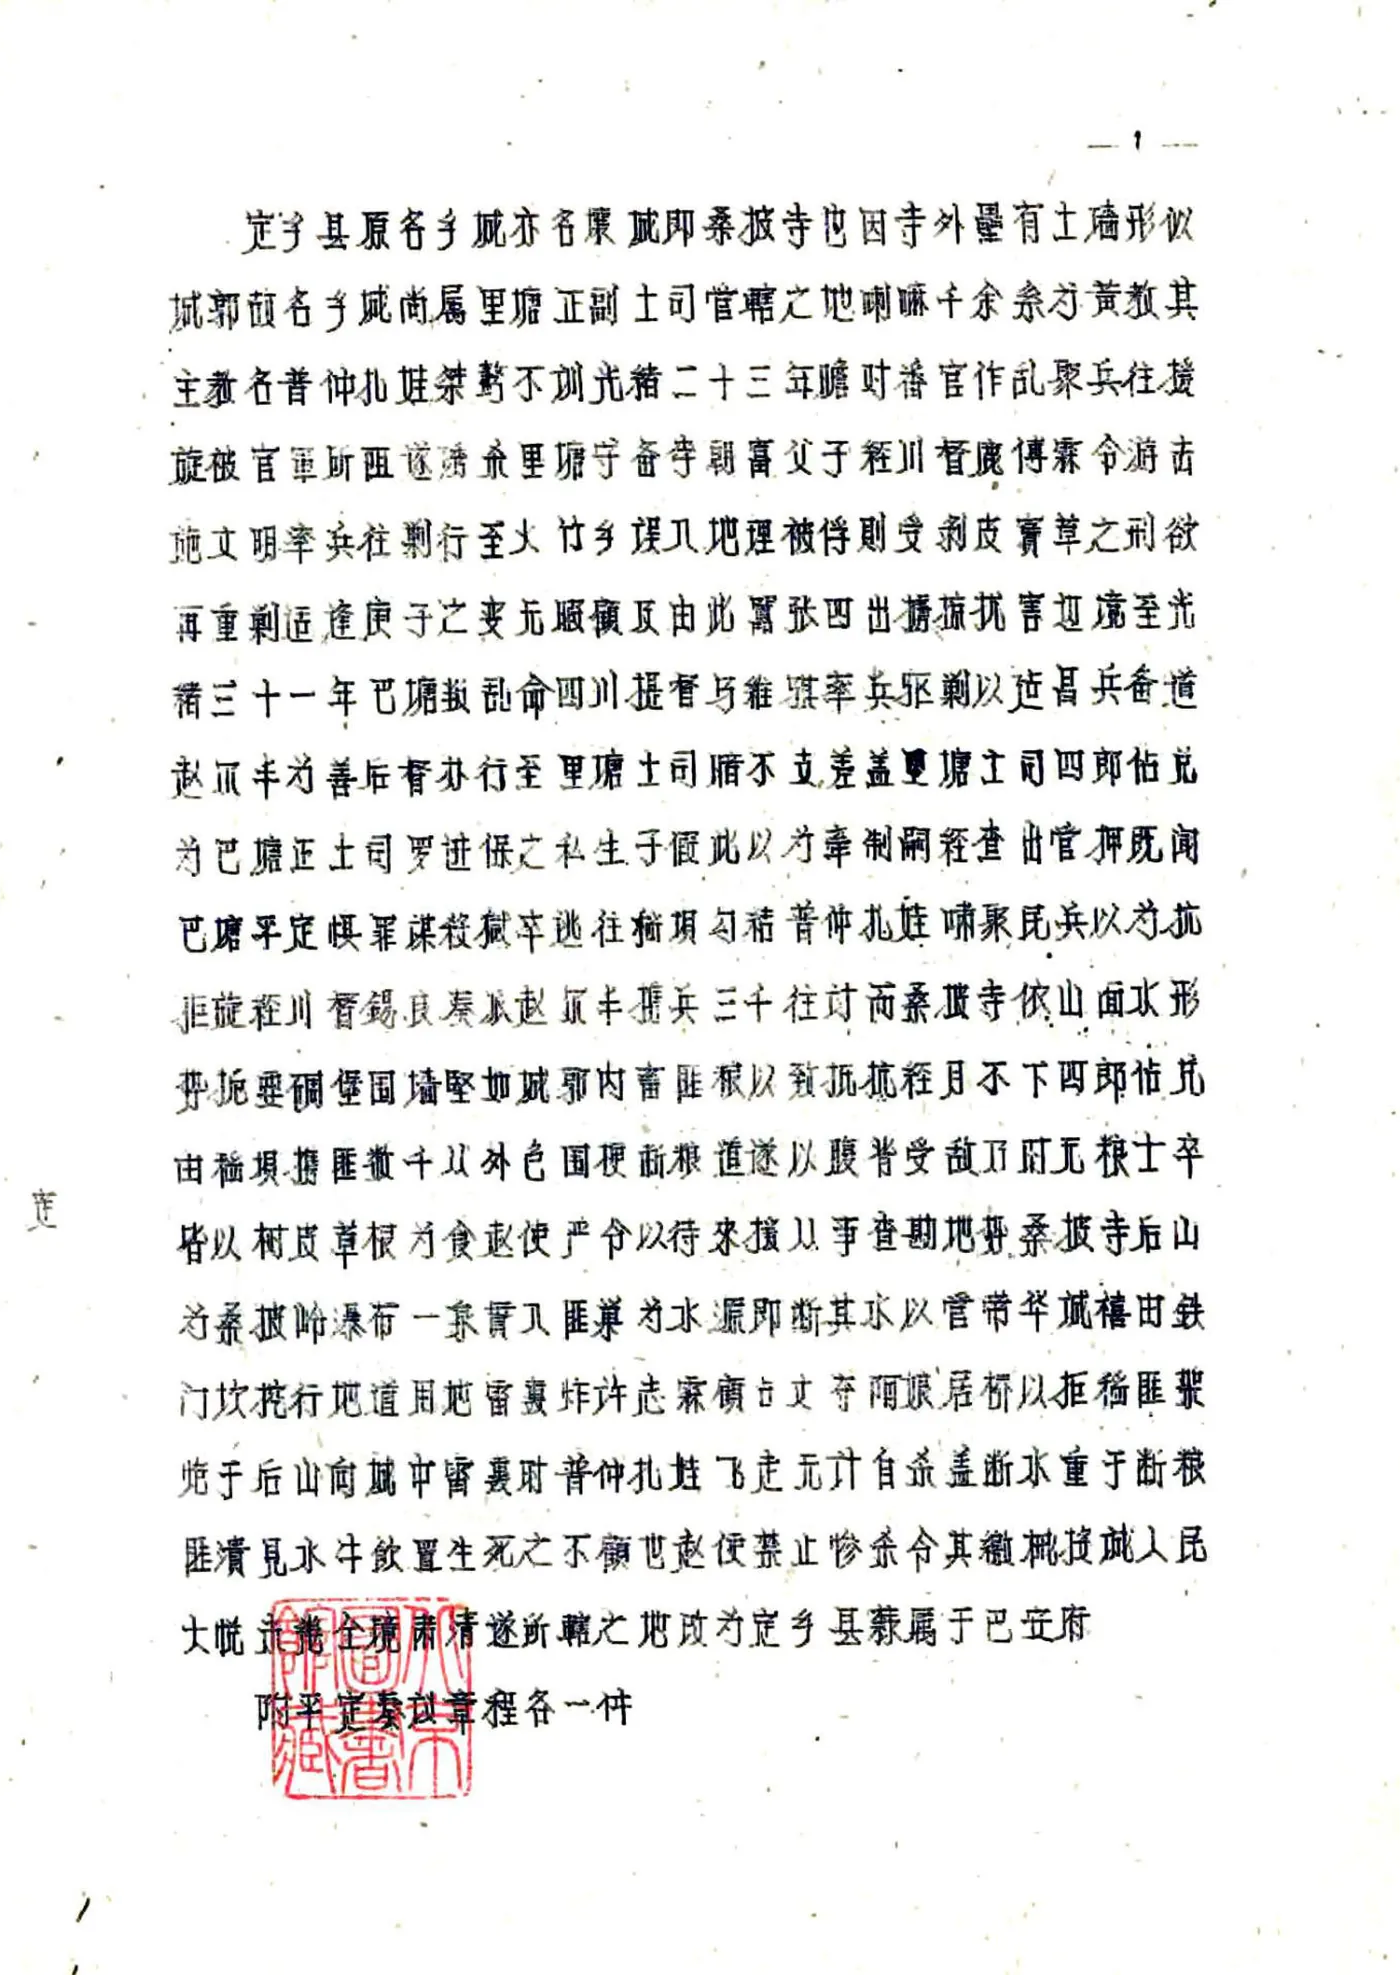 — 1 —
定乡县原名乡城亦名壤城即桑披寺也因寺外垒有土墙形似
城郭故名乡城尚属里塘正副土司管辖之地喇嘛千余系为黄教其
主教名普仲扎娃桀骜不训光绪二十三年瞻对番官作乱聚兵往援
旋被官軍所阻遂诱杀里塘守备寺朝富父子经川督鹿傳霖令游击
施文明率兵往剿行至火竹乡误入地理被俘則受剥皮實草之刑欲
再重剿适逢庚子之变无暇顧及由此嚣张四出掳掠扰害边境至光
绪三十一年巴塘叛乱命四川提督马維骐率兵驱剿以建昌兵备道
赵尔丰为善后督办行至里塘土司暗不支差盖里塘土司四郎佔兑
为巴塘正土司罗进保之私生子假此以为牵制嗣经查出官押既闻
巴塘平定惧罪谋殺獄卒逃往稻垻勾结普仲扎娃啸聚民兵以为抗
拒旋经川督錫良奏派赵尔丰攜兵三千往讨而桑披寺依山面水形
势扼要碉堡围墙坚如城郭内畜匪粮以致抵抗经月不下四郎佔兑
由稻垻携匪数千从外包围梗断粮道遂以腹背受敌乃时无粮士卒
皆以树皮草根为食赵使严令以待来援从事查勘地势桑披寺后山
为桑披岭瀑布一泉貫入匪巢为水源即断其水以管带华诚禧由鉄
门坎挖行地道用地雷轰炸许志霖顧占文夺阿娘居桥以拒稻匪架
炮于后山向城中雷轰时普仲扎娃飞走无计自杀盖断水重于断粮
匪潰見水牛飲置生死之不顧也赵使禁止惨杀令其缴械投诚人民
大悦未幾全境肃清遂所轄之地改为定乡县隸属于巴安府
附平定奏议章程各一件
定